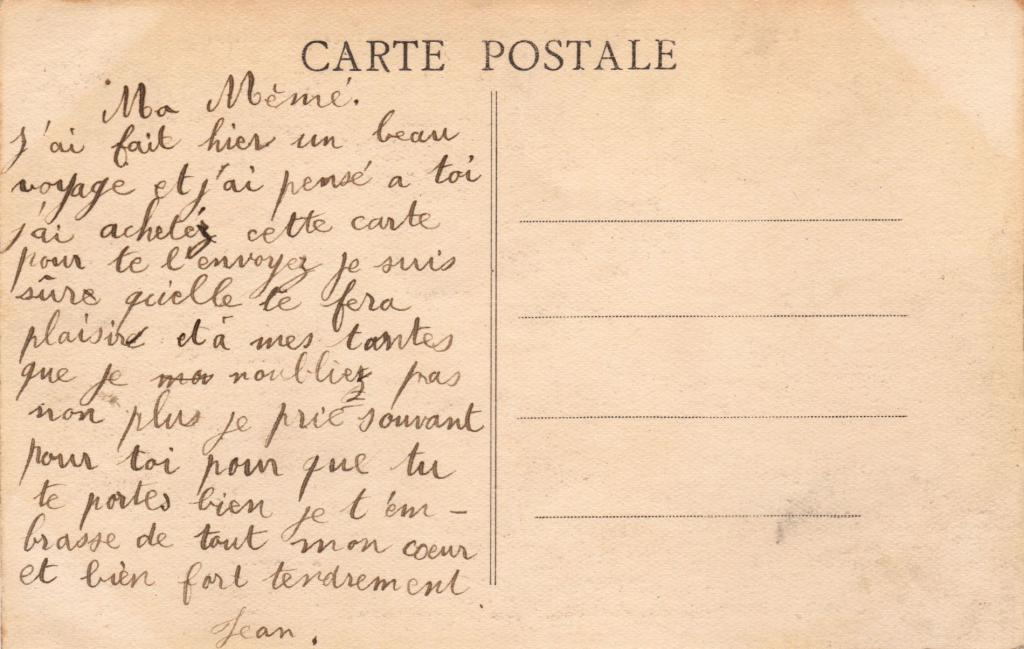 CARTE POSTALE
Ma Mémé.
J'ai fait hier un beau
voyage et j'ai pensé a toi
j'ai achetéz cette carte
pour te l'envoyez je suis
sûre qu'ielle te fera
plaisir et à mes tantes
que je noubliez pas
non plus je prie souvant
pour toi pour que tu
te portes bien je t'em-
brasse de tout mon cœur
et bien fort tendrement
Jean.